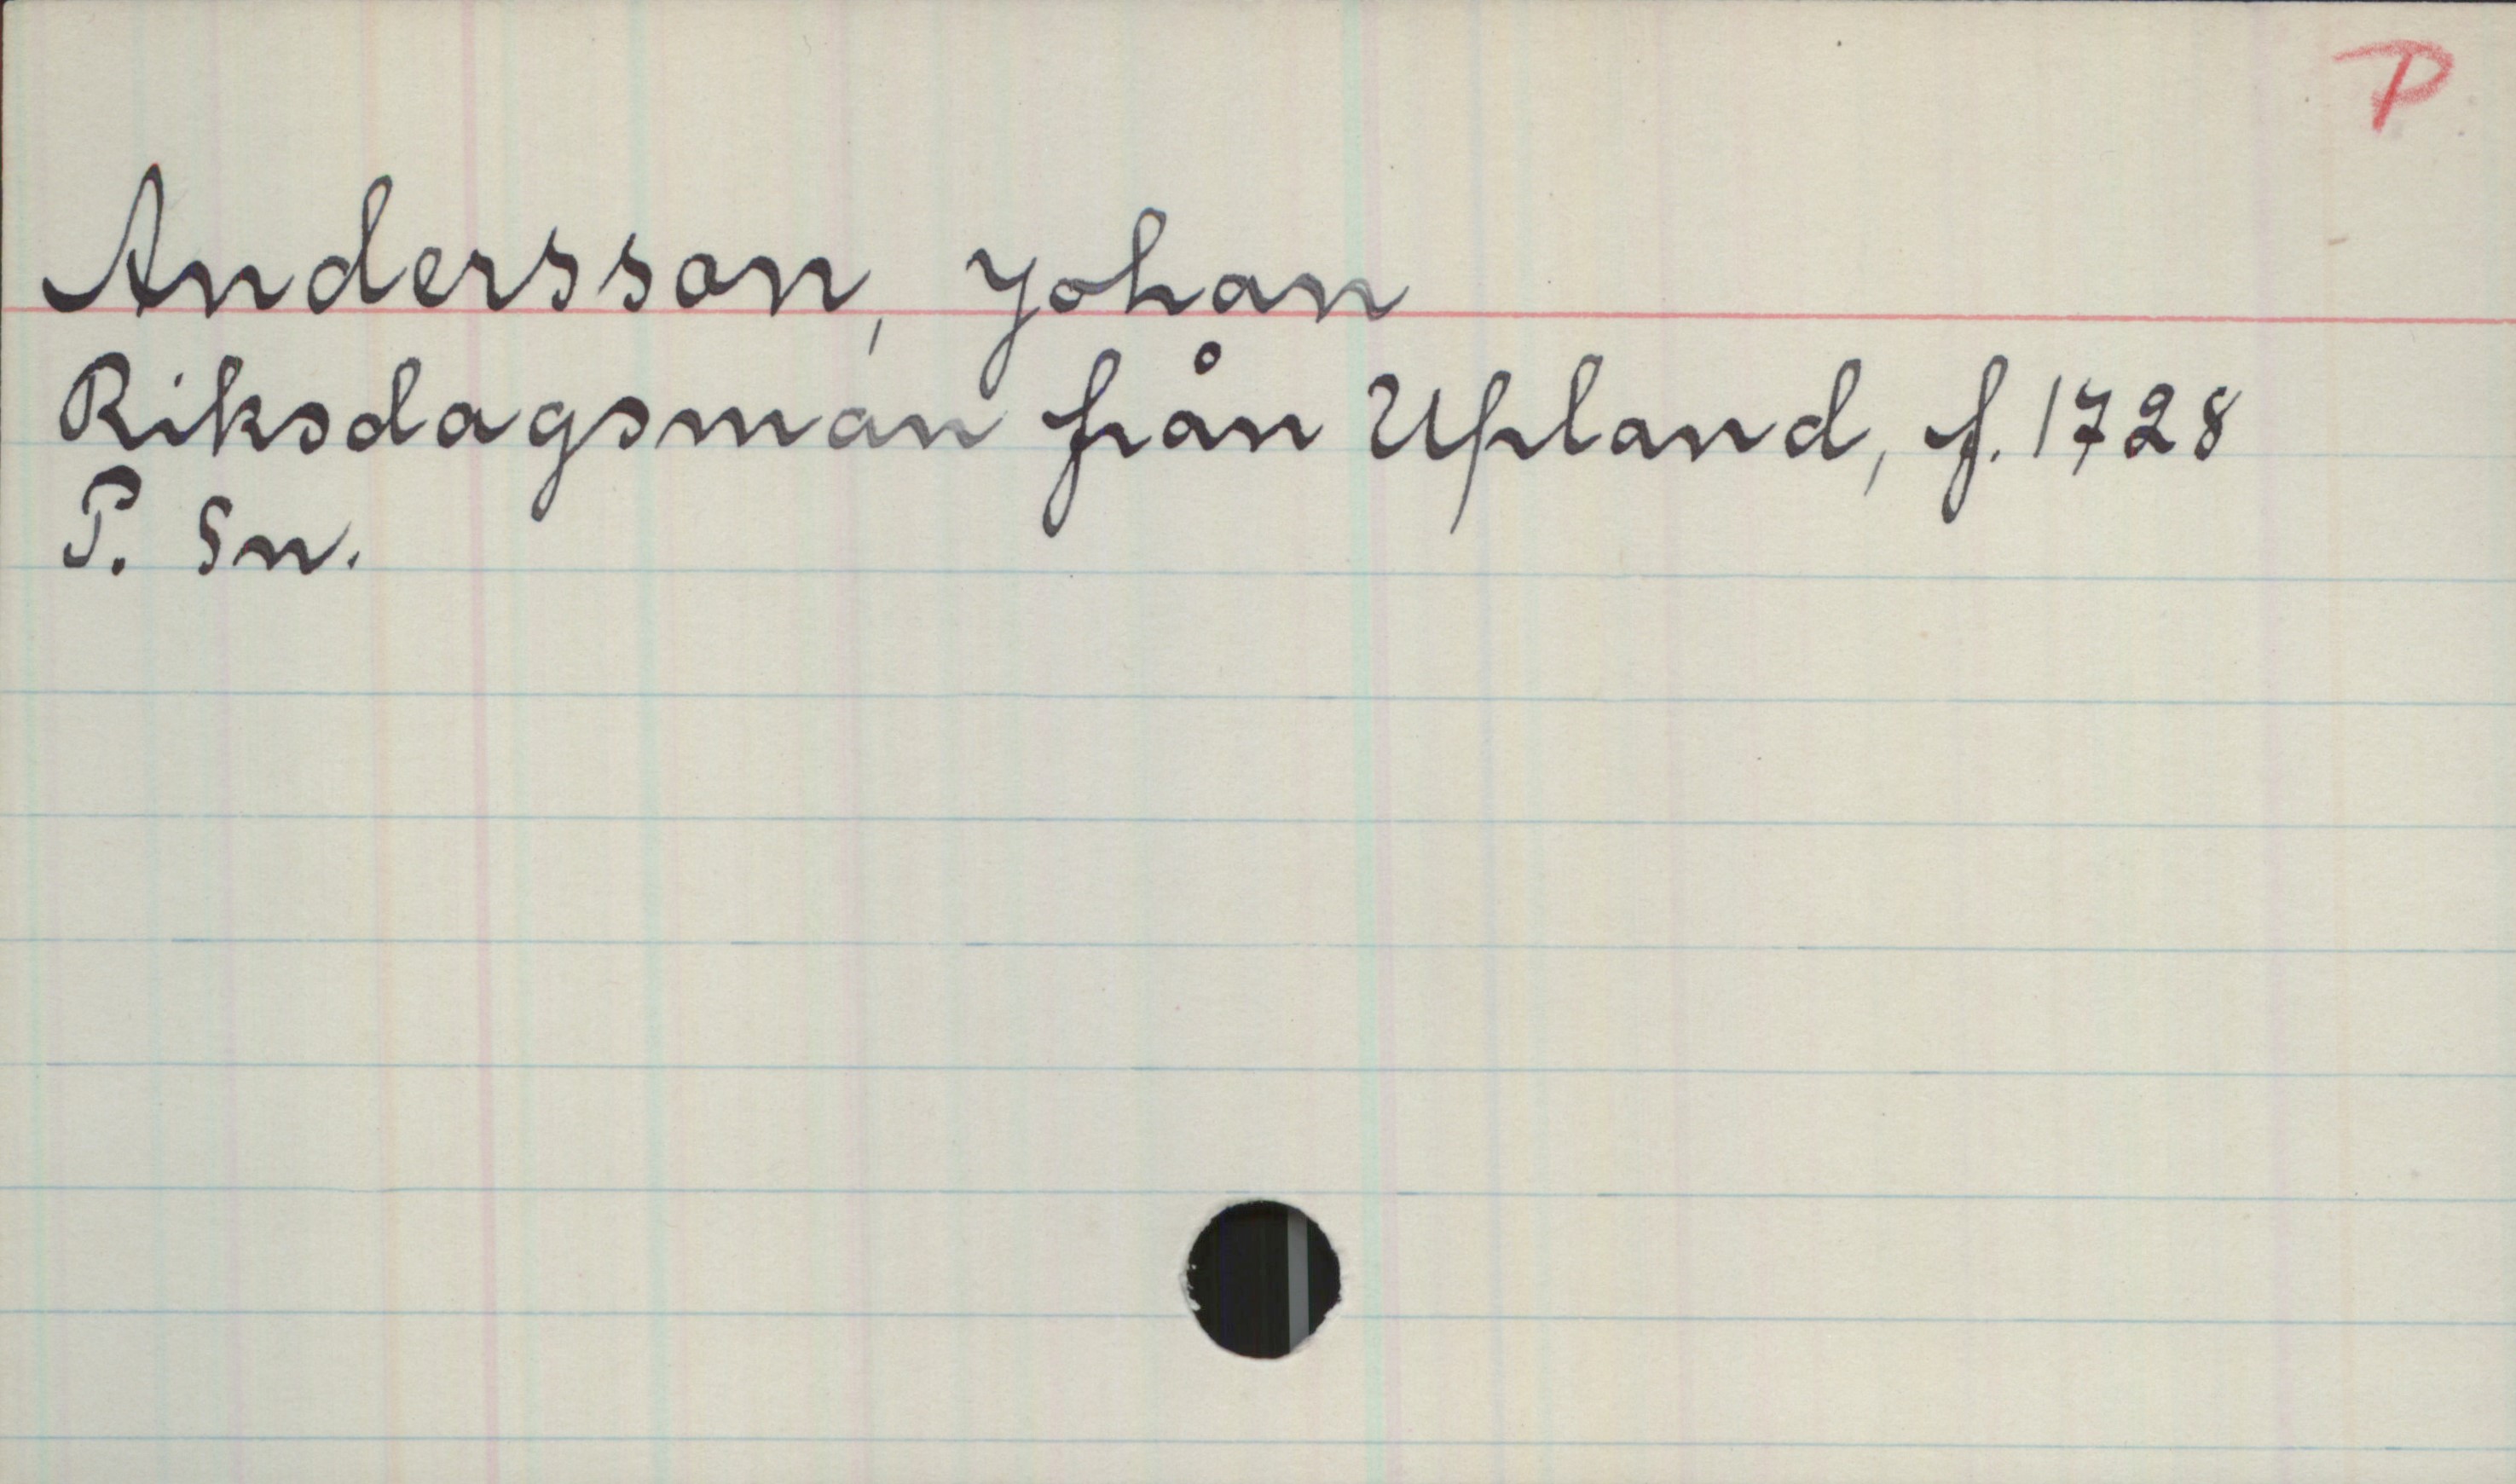 P
Andersson, Johan
Riksdagsman från Upland, f. 1728
P. Sn.